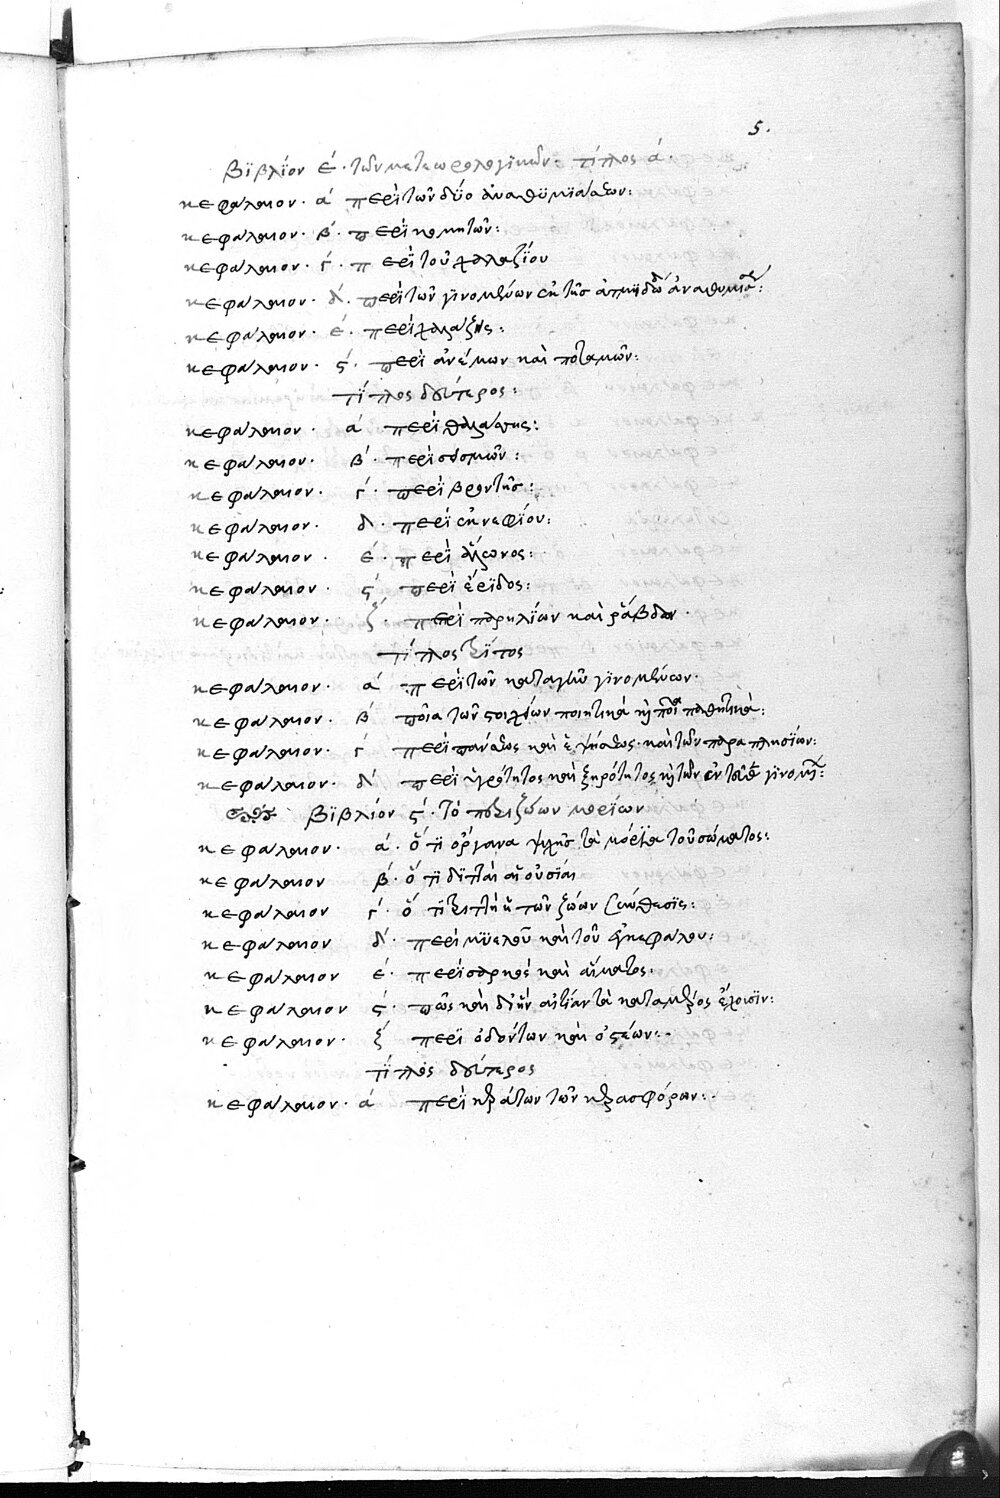 5.
βϊβλίον έ· τῶν μετεωρολογϊκῶν· τίτλος ά·
κεφάλαιον· ά περϊ τῶν δύο ἀναθϋμϊάσεων:
κεφάλαιον· β΄· περϊ κομητῶν:
κεφάλαιον· γ΄· περϊ τοῦ γαλαξΐου
κεφάλαιον· δ΄· περϊ τῶν γϊνομένων ἐκ τῆς ἀτμϊδώδους ἀναθυμιάσεως:
κεφάλαιον· έ· περϊ χαλάζης:
κεφάλαιον· ς΄· περϊ ἀνέμων καὶ ποταμῶν:
τΐτλος δεύτερος:
κεφάλαιον· ά περϊ θαλάττης:
κεφάλαιον· β΄· περϊ σεισμῶν:
κεφάλαιον· γ΄· περϊ βροντῆς:
κεφάλαιον· δ· περϊ ἐκνεφΐου:
κεφάλαιον· έ· περϊ ἅλωνος:
κεφάλαιον· ς΄ περϊ ἴρϊδος:
κεφάλαιον· ζ΄· περϊ παρηλΐων καὶ ῥάβδων·
τΐτλος τρΐτος
κεφάλαιον· ά περϊ τῶν κατὰ γῆν γϊνομένων·
κεφάλαιον· β΄ ποῖα τῶν στοιχείων ποιητικά καὶ ποῖα παθητικά:
κεφάλαιον· γ΄ περϊ πεπάνσεως καὶ ἑψήσεως· καὶ τῶν παραπλησΐων:
κεφάλαιον· δ΄ περϊ ὑγρότητος καὶ ξηρότητος καὶ τῶν ἐν γϊνομένων:
βϊβλίον ς΄· τὸ περὶ ζώων μορίων
κεφάλαιον· ά· ὅτϊ ὄργανα ψυχῆς τὰ μόρϊα τοῦ σώματος:
κεφάλαιον β΄· ὅτϊ διτταὶ αἱ οὐσίαι
κεφάλαιον γ΄· ὅτϊ τριττὴ ἡ τῶν ζώων σύνθεσϊς:
κεφάλαιον δ΄· περϊ μϋελοῦ καὶ τοῦ ἐγκεφάλου:
κεφάλαιον έ· περϊ σαρκὸς καὶ αἵματος·
κεφάλαιον ς΄· πῶς καὶ δϊ' ἣν αἰτίαν τὰ κατὰ μέρος ἔχουσϊν:
κεφάλαιον· ζ΄ περϊ ὀδόντων καὶ ὀστέων:
τΐτλος δεύτερος
κεφάλαιον· ά περϊ κεράτων τῶν κερασφόρων: